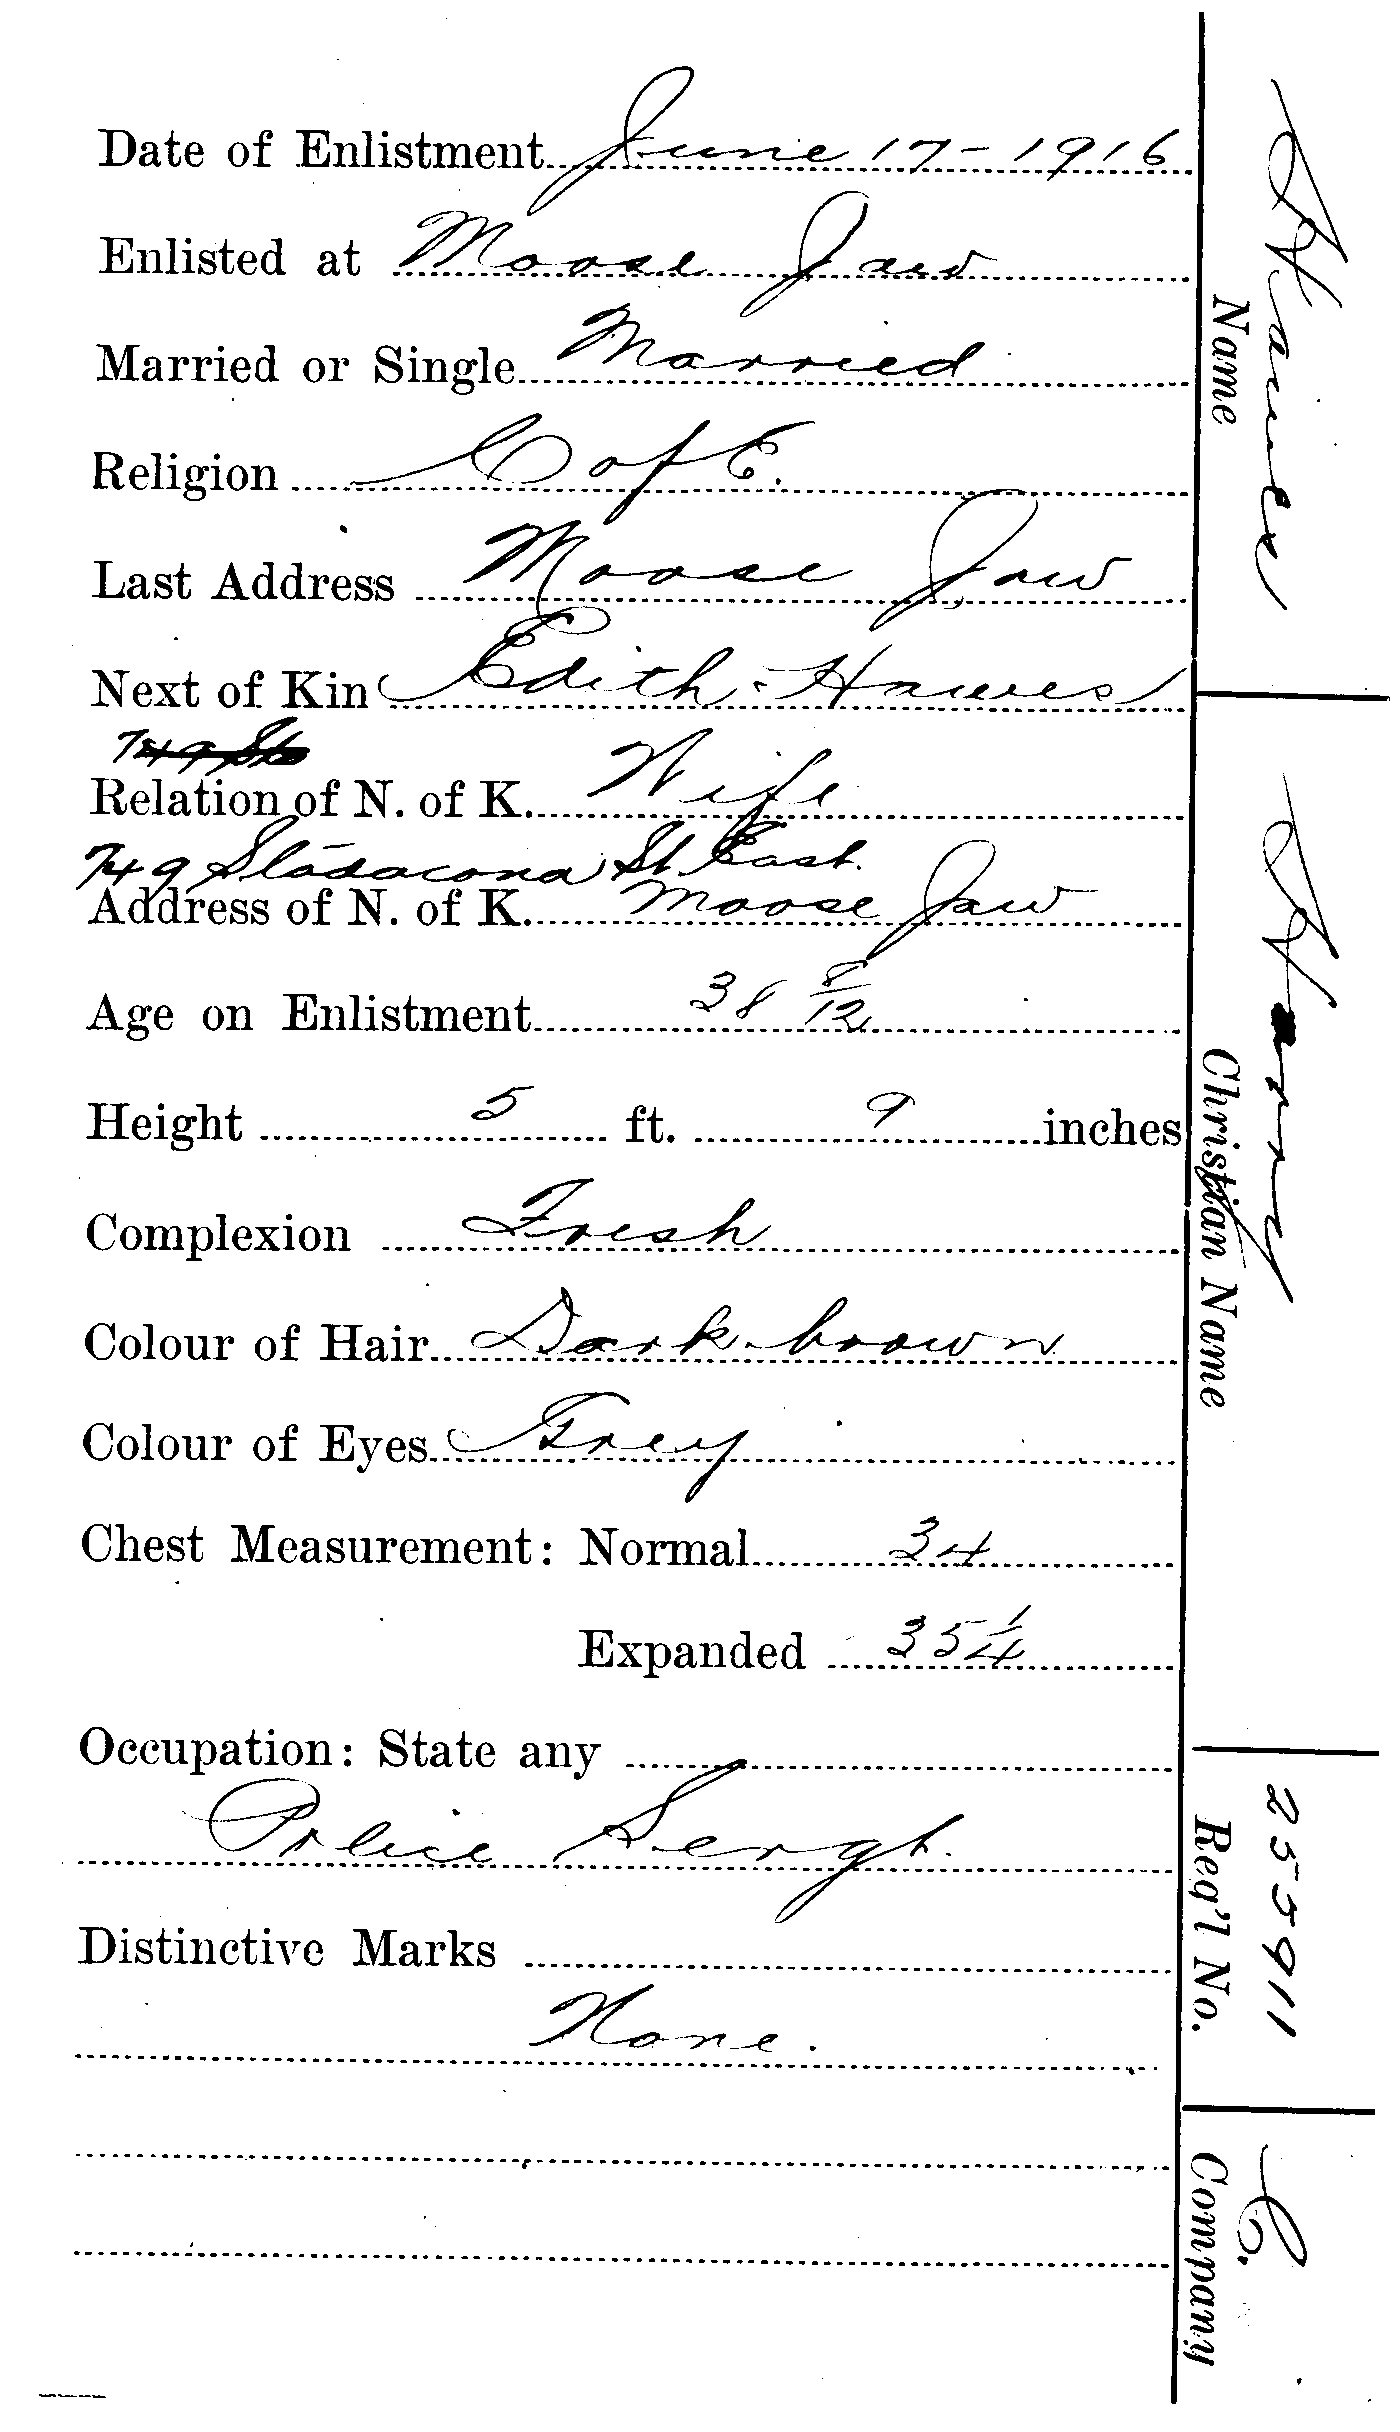 Date of Enlistment June 17-1916
Enlisted at Moose Jaw
Married or Single Married
Religion C of E.
Last Address Moose Jaw
Next of Kin Edith Hawes
749 St
Relation of N. of K. Wife
749 Stadacona St East.
Address of N. of K. Moose Jaw
Age on Enlistment 38 8/12
Height 5 ft. 9 inches
Complexion Fresh
Colour of Hair Dark brown
Colour of Eyes Grey
Chest Measurement: Normal 34
Expanded 35 1/4
Occupation: State any
Police Sergt.
Distinctive Marks
None.
Hawes
Name
Harry
Christian Name
255911
Reg'l No.
C.
Company